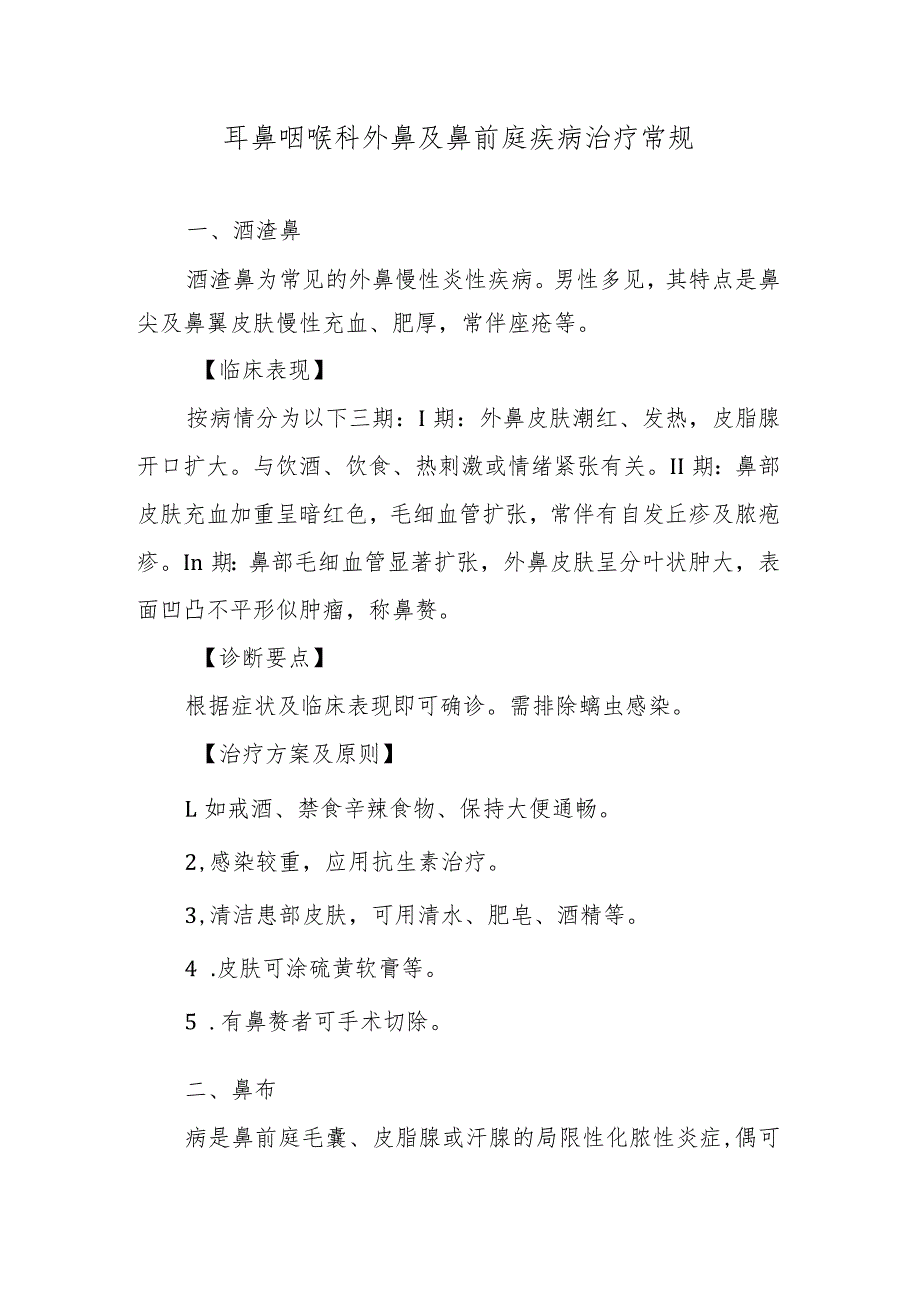 耳鼻咽喉科外鼻及鼻前庭疾病治疗常规
一、酒渣鼻
酒渣鼻为常见的外鼻慢性炎性疾病。男性多见，其特点是鼻
尖及鼻翼皮肤慢性充血、肥厚，常伴座疮等。
【临床表现】
按病情分为以下三期：I 期：外鼻皮肤潮红、发热，皮脂腺
开口扩大。与饮酒、饮食、热刺激或情绪紧张有关。II 期：鼻部
皮肤充血加重呈暗红色，毛细血管扩张，常伴有自发丘疹及脓疱
疹。In 期：鼻部毛细血管显著扩张，外鼻皮肤呈分叶状肿大，表
面凹凸不平形似肿瘤，称鼻赘。
【诊断要点】
根据症状及临床表现即可确诊。需排除螨虫感染。
【治疗方案及原则】
L 如戒酒、禁食辛辣食物、保持大便通畅。
2,感染较重，应用抗生素治疗。
3,清洁患部皮肤，可用清水、肥皂、酒精等。
4 .皮肤可涂硫黄软膏等。
5 .有鼻赘者可手术切除。
二、鼻布
病是鼻前庭毛囊、皮脂腺或汗腺的局限性化脓性炎症,偶可